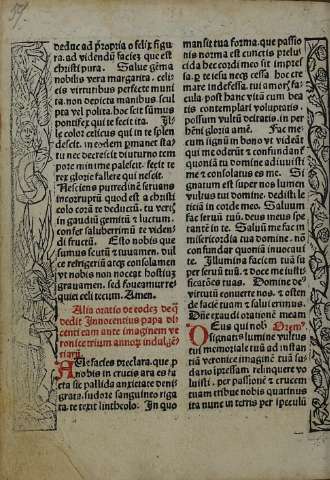 deduc ad ppria o felix figu
ra. ad videndū faciez que est
christi pura. Salue gēma
nobilis vera margarita. celi-
cis virtutibus perfecte muni
ta. non depicta manibus scul
pta vel polita. hoc scit summꝰ
pontifex qui te fecit ita. Il-
le color celicus qui in te splen
descit. in eodem pmanet sta-
tu nec decrescit. diuturno tem
pore minime pallescit. fecit te
rex glorie fallere qui nescit.
Nesciens putredinē seruans
incorruptū. quod est a christi
colo corā te deductū. tu vertis
in gaudiū gemitū & luctum.
confer saluberrimū te viden-
di fructū. Esto nobis que
sumus scutū & tuuamen. dul
ce refrigeriū atqꝫ consolamen
vt nobis non noceat hostiuꝫ
grauamen. sed foueamur re
quiei celi tecum. Amen.
Alia oratio de eodeꝫ deqꝫ
dedit Innocentius papa di
centi eam ante imaginem ve
ronice trium annoꝝ indulgē
tiam.
Ave facies preclara. que p
nobis in crucis ara es fa
cta sic pallida. anxietate deni
grata. sudore sanguineo riga
ta. te texit lintheolo. In quo
mansit tua forma. que passio
nis norma est cunctis prelu-
cida. hec cordi meo sit impres
sa. p te iesu necꝫ cessa hoc cre
mare indefessa. tui amoris fa
cula. post hanc vita cum bea
tis contemplari voluptatis.
possum vultū deitatis. in per
henni gloria amē. Fac me-
cum signū in bono vt videāt
qui me oderūt & confundant̄
quoniā tu domine adiuuisti
me & consolatus es me. Si
gnatum est super nos lumen
vultus tui domine. dedisti le
titiā in corde meo. Saluum
fac seruū tuū. deus meus spe
rantē in te. Saluū me fac in
misericordia tua domine. nō
confundar quoniā inuocaui
te. Illumina faciem tuā su
per seruū tuū. & doce me iusti
ficatões tuas. Domine de9
virtutū conuerte nos. & osten
de faciē tuam & salui erimus.
Dūe exaudi orationē meam
Deus qui nob Orem9.
signatis lumine vultus
tui memoriale tuū ad instan
tiā veronice imaginē tuā su
dario ipressam relinquere vo
luisti. per passionē & crucem
tuam tribue nobis quatinus
ita nunc in terris per speculū